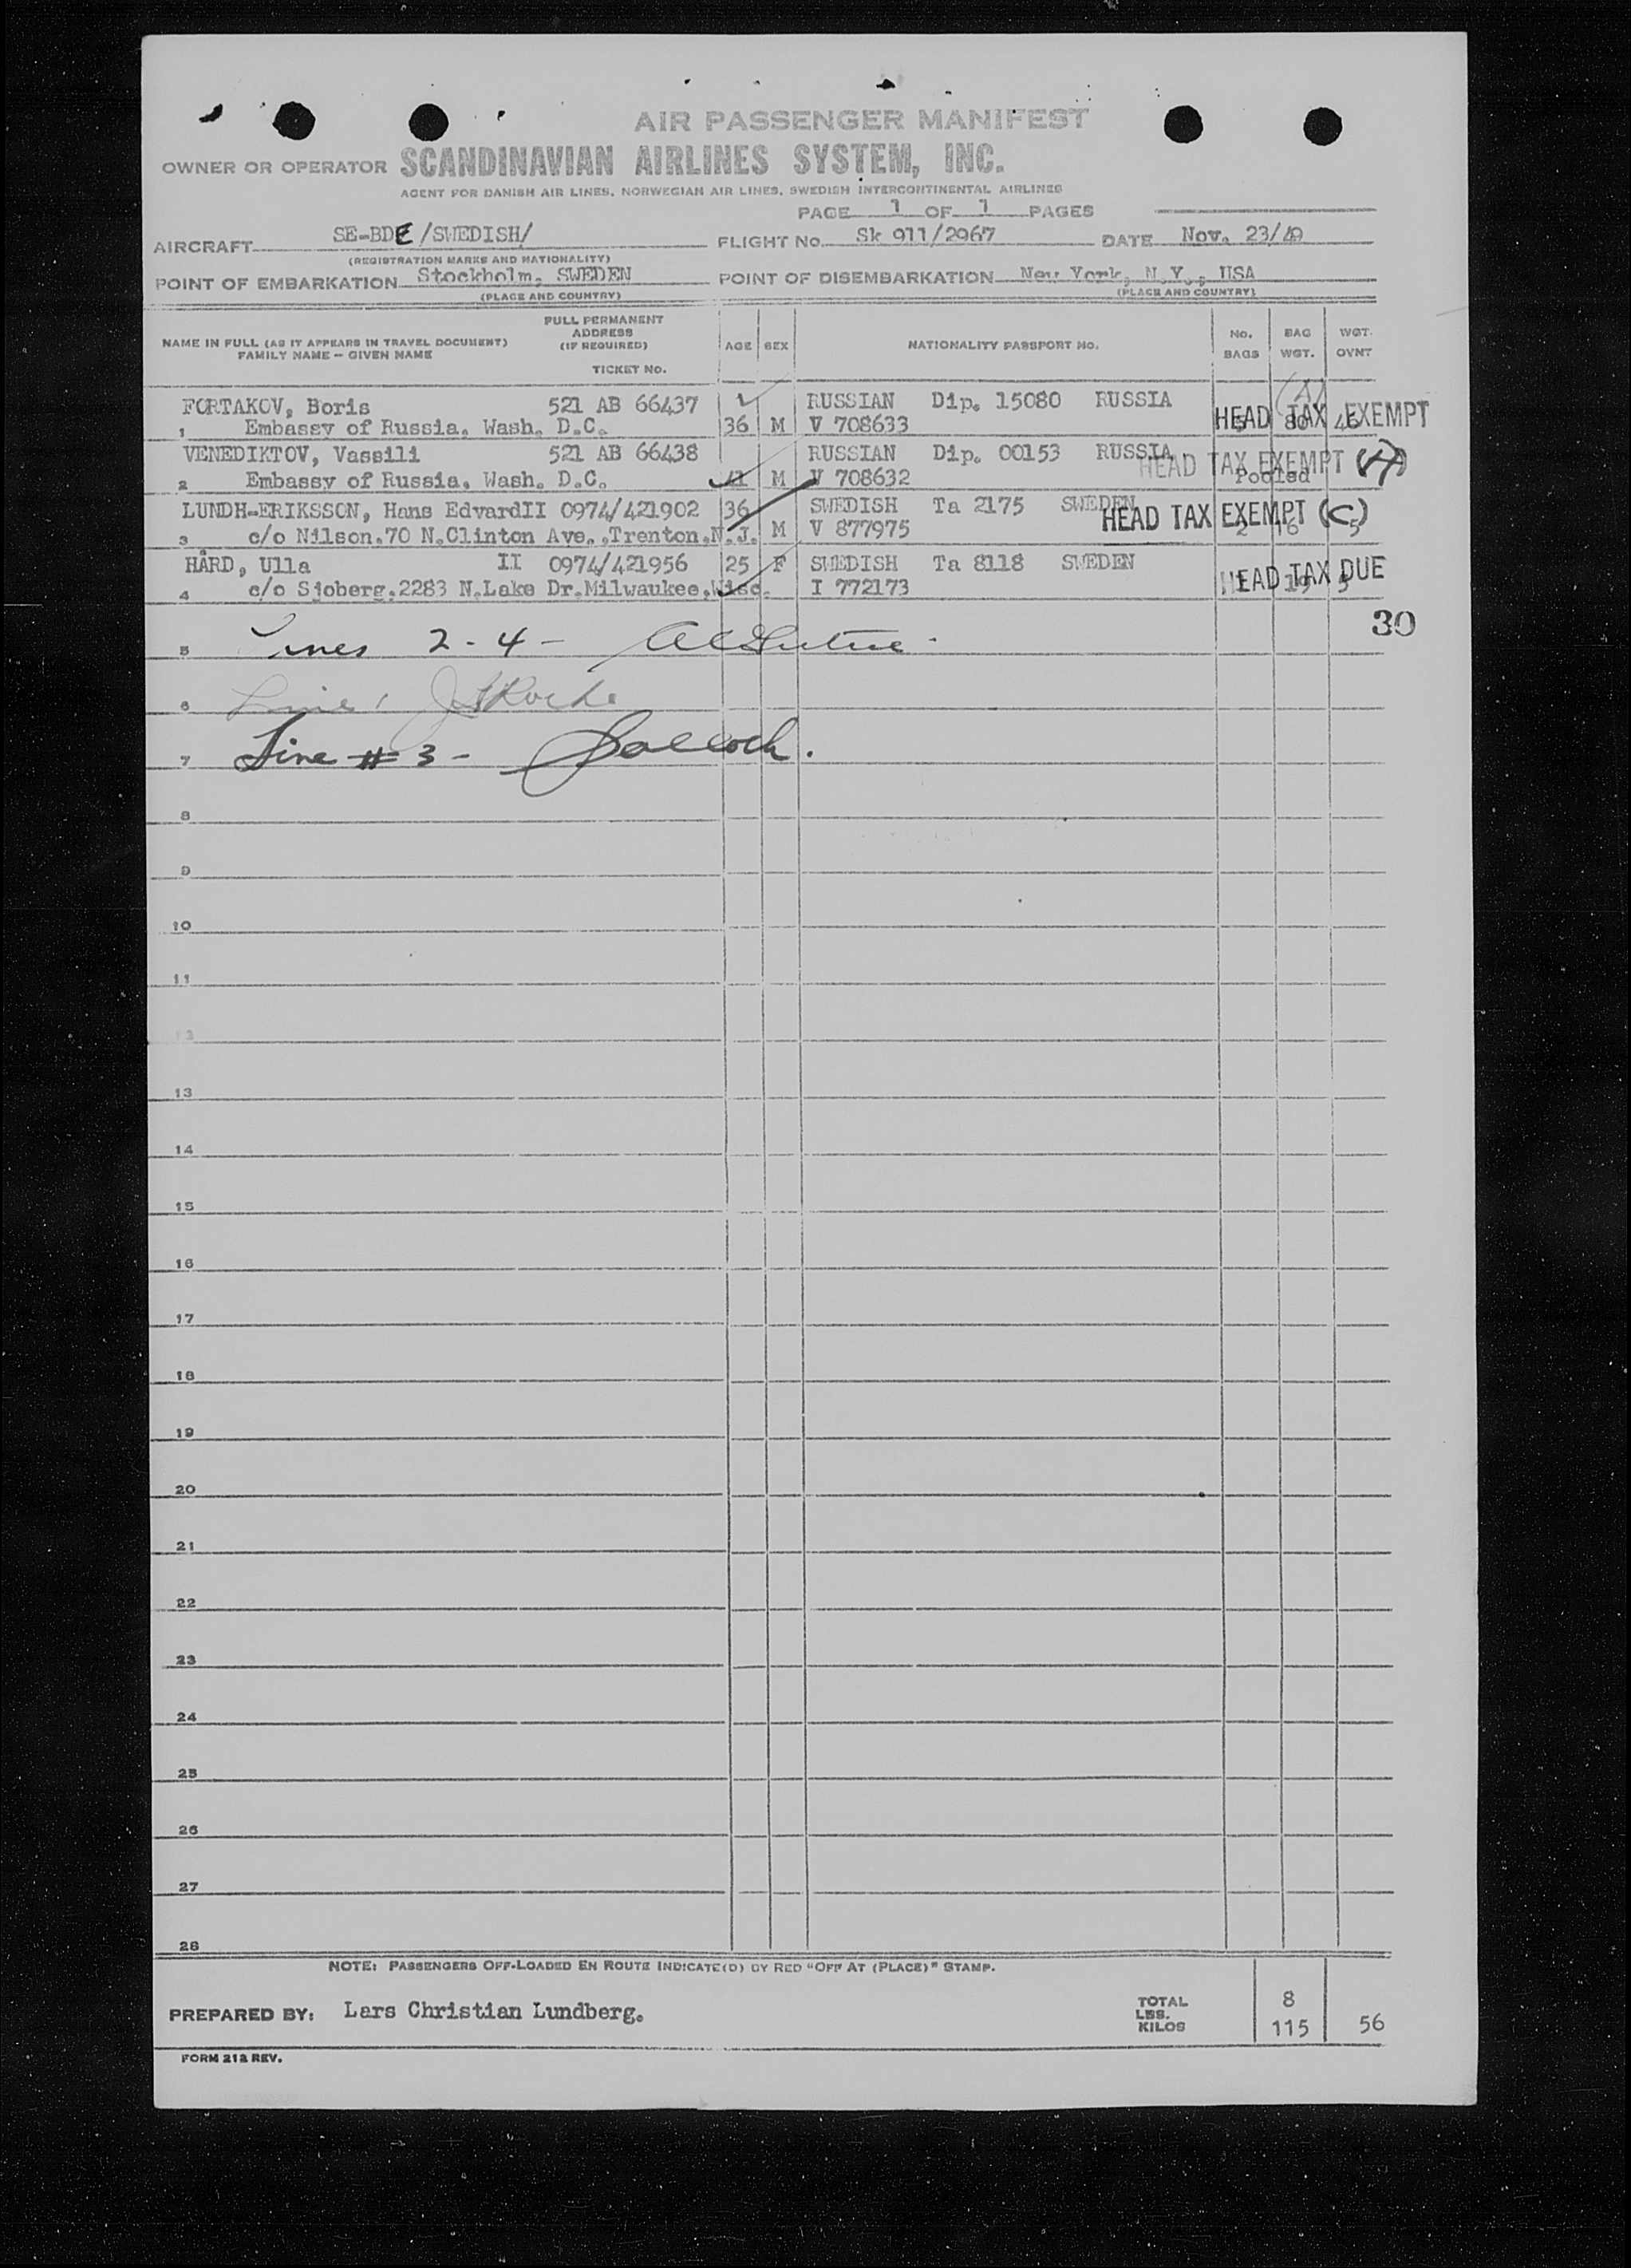 AIR PASSENGER MANIFEST
OWNER OR OPERATOR SCANDINAVIAN AIRLINES SYSTEM, INC.
AGENT FOR DANISH AIR LINES, NORWEGIAN AIR LINES, SWEDISH INTERCONTINENTAL AIRLINES
PAGE 1 OF 1 PAGES
AIRCRAFT SE-BDE /SWEDISH/ FLIGHT No. Sk 911/2967 DATE Nov. 23/49
(REGISTRATION MARKS AND NATIONALITY)
POINT OF EMBARKATION Stockholm, SWEDEN POINT OF DISEMBARKATION New York, N.Y., USA
(PLACE AND COUNTRY) (PLACE AND COUNTRY)
NAME IN FULL (AS IT APPEARS IN TRAVEL DOCUMENT) FAMILY NAME – GIVEN NAME FULL PERMANENT ADDRESS (IF REQUIRED) TICKET No. AGE SEX NATIONALITY PASSPORT No. No. BAGS BAG WGT. WGT. OVNT
FORTAKOV, Boris 521 AB 66437 RUSSIAN Dip. 15080 RUSSIA (A)
1 Embassy of Russia, Wash. D.C. 36 M V 708633 5 80 46 HEAD TAX EXEMPT
VENEDIKTOV, Vassili 521 AB 66438 RUSSIAN Dip. 00153 RUSSIA HEAD TAX EXEMPT (A)
2 Embassy of Russia, Wash. D.C. 41 M V 708632 Pooled
LUNDH-ERIKSSON, Hans Edvard II 0974/421902 36 SWEDISH Ta 2175 SWEDEN HEAD TAX EXEMPT (C)
3 c/o Nilson.70 N.Clinton Ave.,Trenton.N.J. M V 877975 2 16 5
HÅRD, Ulla II 0974/421956 25 F SWEDISH Ta 8118 SWEDEN HEAD TAX DUE
4 c/o Sjoberg.2283 N.Lake Dr.Milwaukee.Wisc. I 772173 1 19 5
30
5 Lines 2 - 4 -
6 Line 1 Roche
7 Line # 3 -
8
9
10
11
12
13
14
15
16
17
18
19
20
21
22
23
24
25
26
27
28
NOTE: PASSENGERS OFF-LOADED EN ROUTE INDICATE(D) BY RED "OFF AT (PLACE)" STAMP.
PREPARED BY: Lars Christian Lundberg.
TOTAL 8
LBS.
KILOS 115 56
FORM 212 REV.